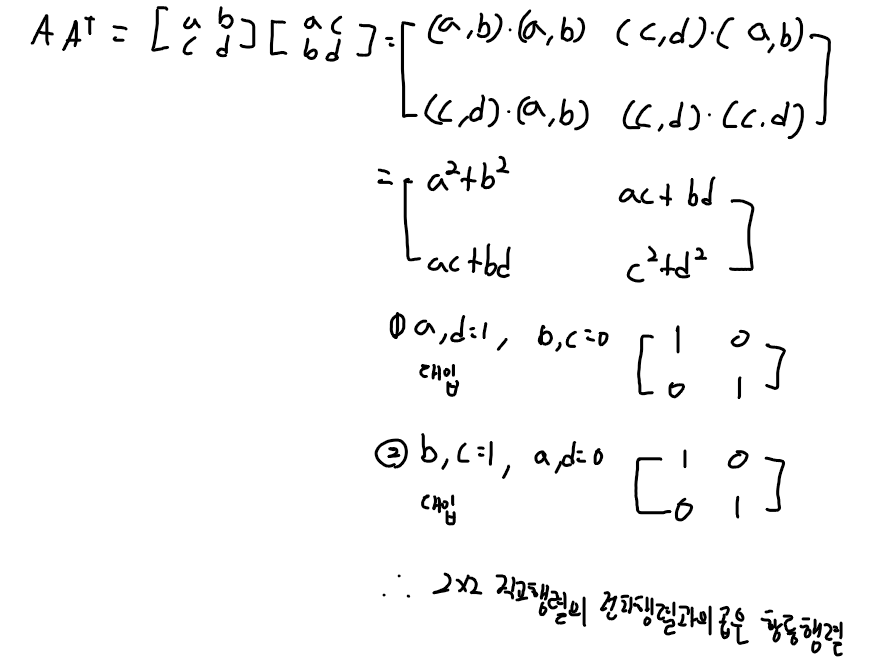 A Aᵀ = [a b c d] [a c b d] = [(a,b)·(a,b) (c,d)·(a,b)
(c,d)·(a,b) (c,d)·(c,d)]
= [a²+b² ac+bd
ac+bd c²+d²]
① a,d=1, b,c=0 [1 0
대입 0 1]
② b,c=1, a,d=0 [1 0
대입 0 1]
∴ 2×2 직교행렬의 전치행렬과의 곱은 항등행렬